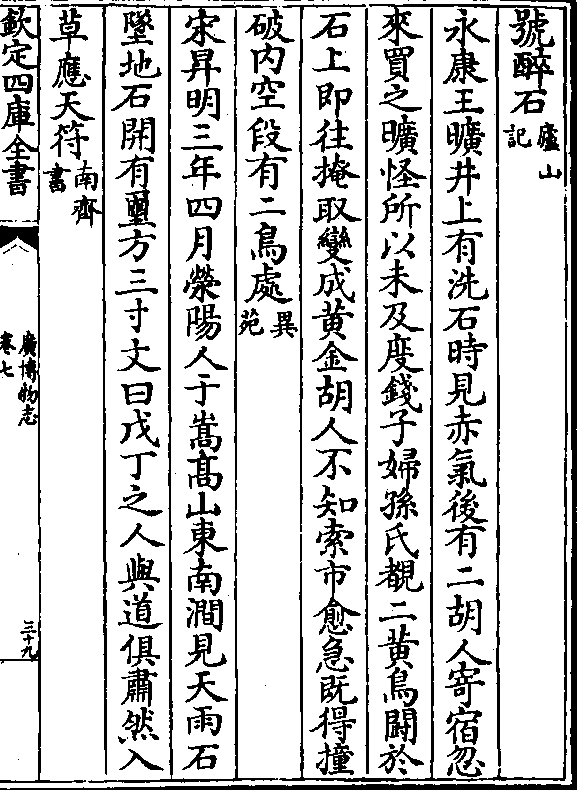 號醉石廬山記
永康王曠井上有洗石時見赤氣後有二胡人寄宿忽
來買之曠怪所以未及度錢子婦孫氏覩二黃鳥鬭於
石上即往掩取變成黃金胡人不知索市愈急既得撞
破内空段有二鳥處異苑
宋昇明三年四月滎陽人于嵩髙山東南澗見天雨石
墜地石開有璽方三寸文曰戊丁之人與道俱肅然入
草應天符南齊書
欽定四庫全書
廣博物志
卷七
三十九